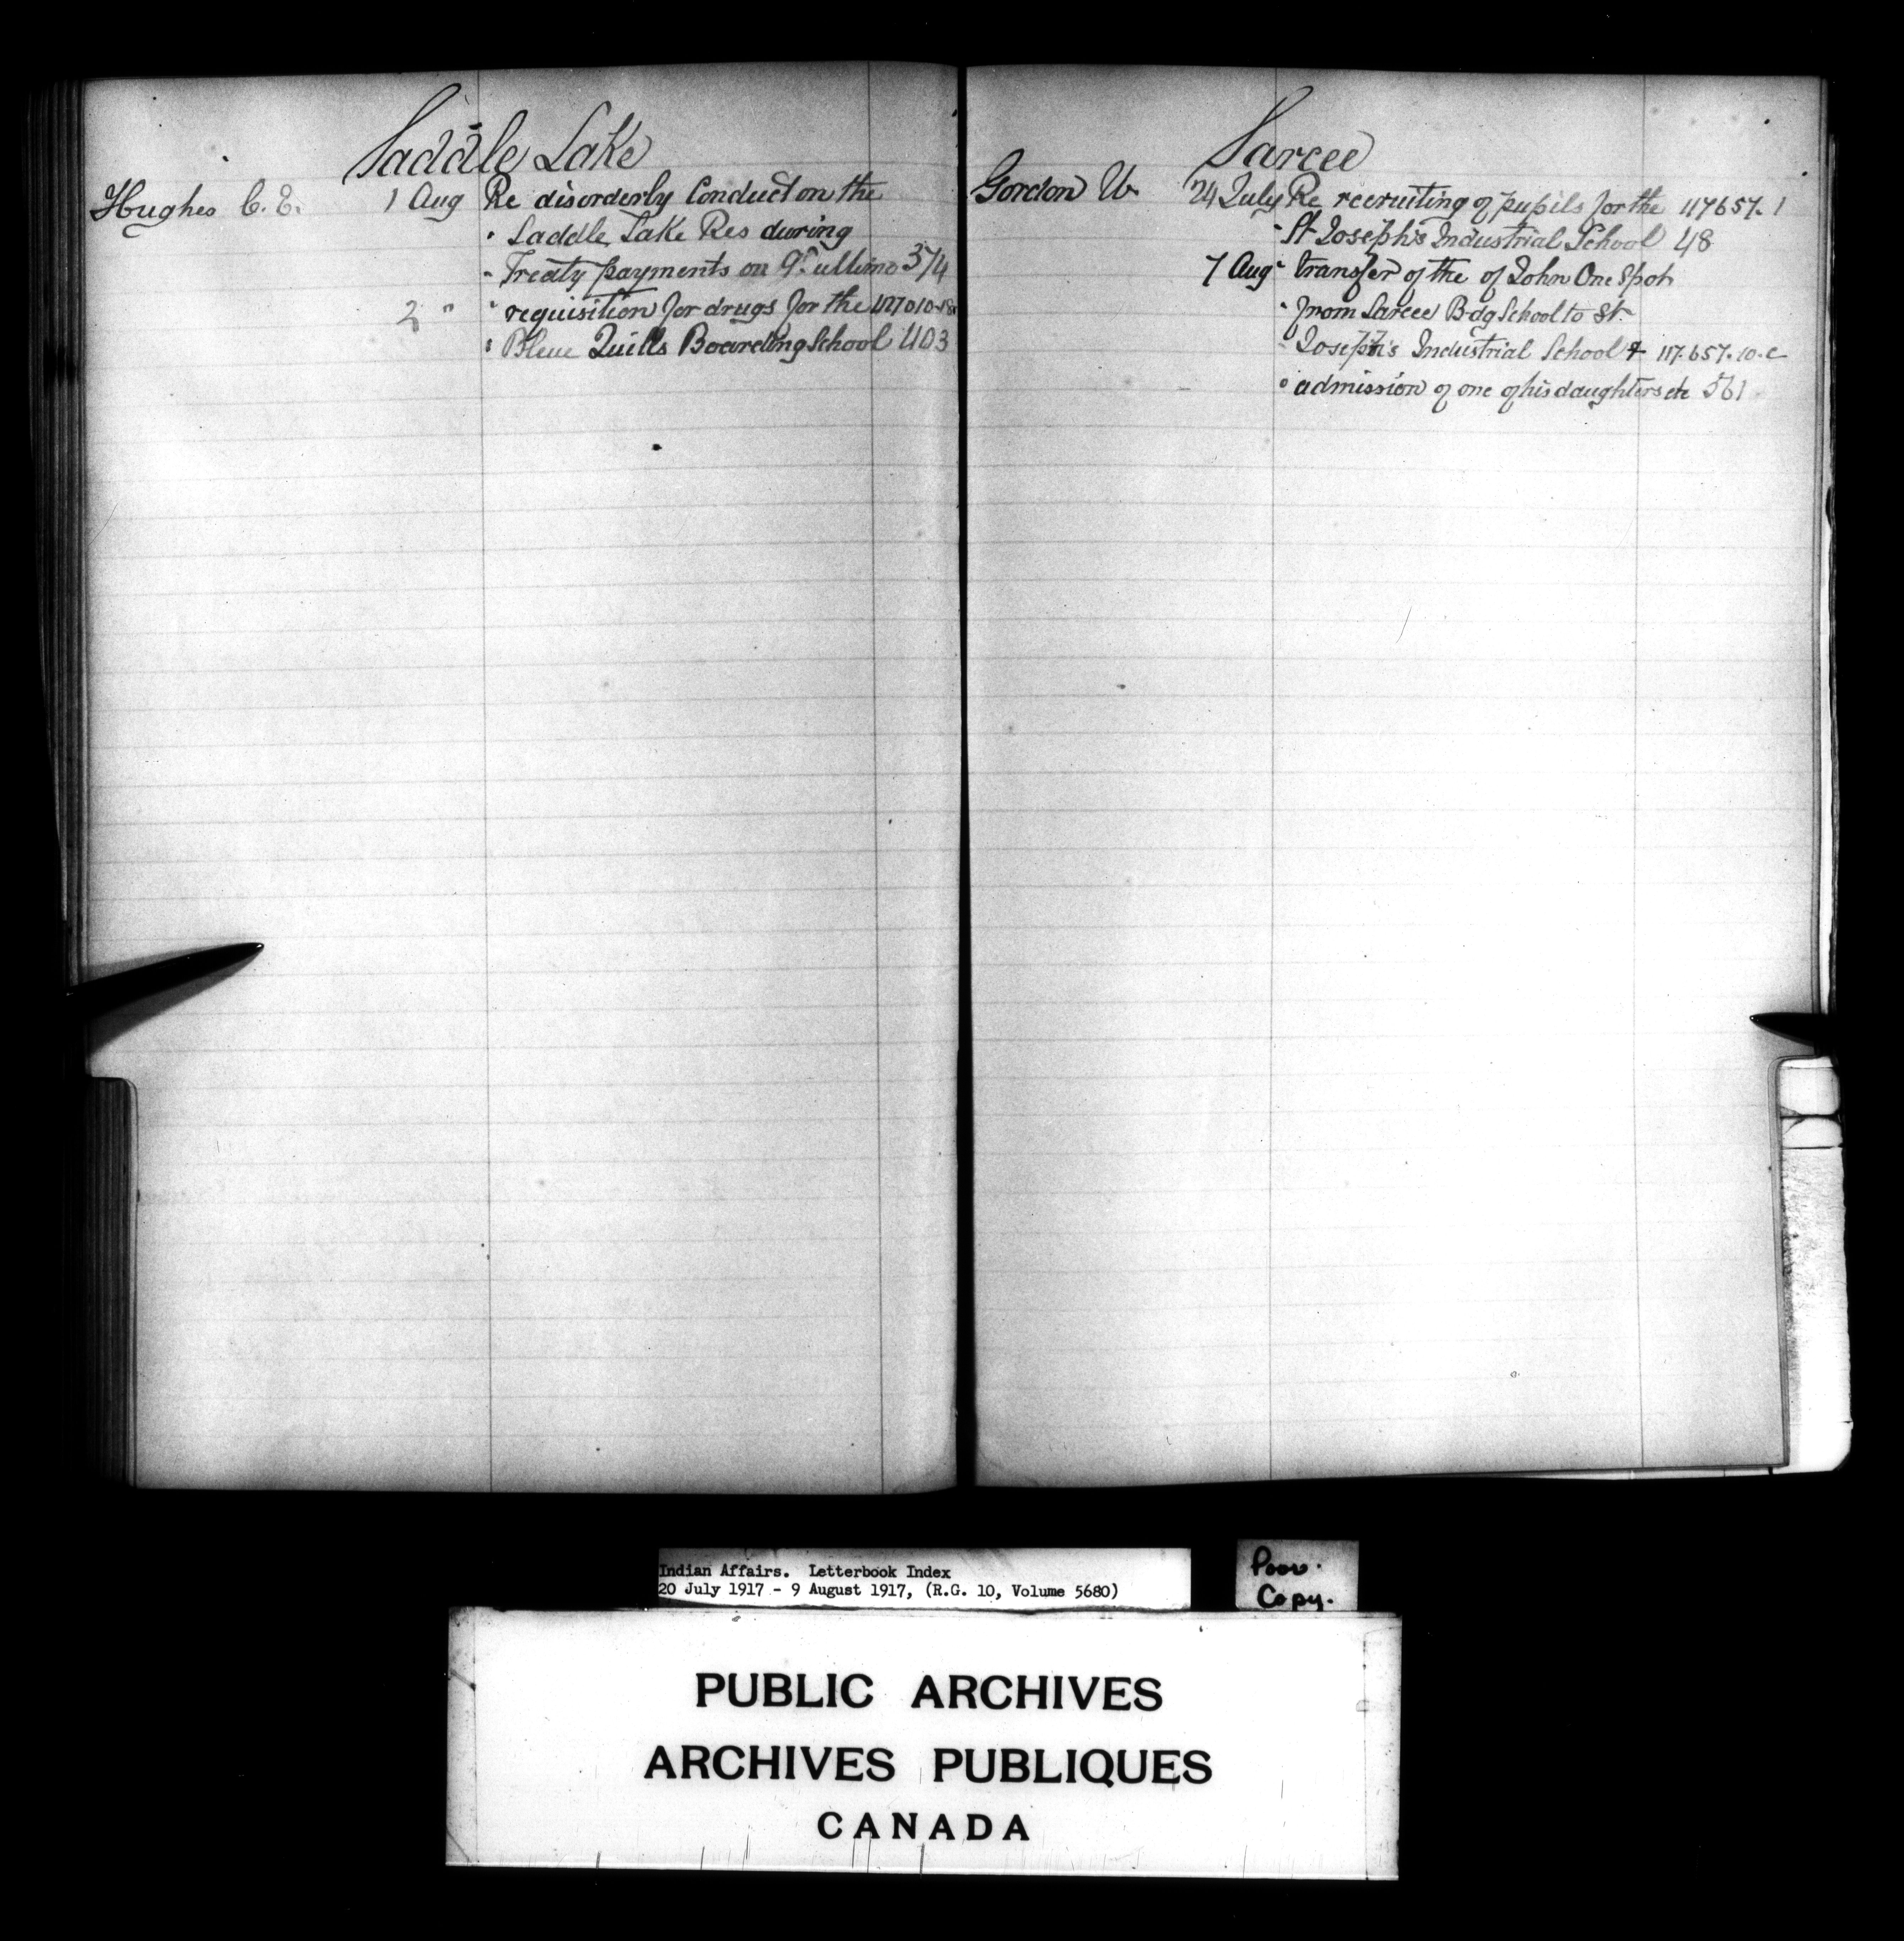 Saddle Lake
Hughes C. E. 1 Aug Re disorderly Conduct on the
" Saddle Lake Res during
" Treaty payments on 9th ultimo 374
2 " " requisition for drugs for the
" Blue Quills Boarding School 403
Sarcee
Gordon W. 24 July Re recruiting of pupils for the 117657-1
" St Joseph's Industrial School 48
7 Aug " transfer of the of John One Spot
" from Sarcee Bdg School to St.
" Joseph's Industrial School & 117.657-10-c
" admission of one of his daughters etc 561
Indian Affairs. Letterbook Index
20 July 1917 - 9 August 1917, (R.G. 10, Volume 5680)
Poor
Copy.
PUBLIC ARCHIVES
ARCHIVES PUBLIQUES
CANADA